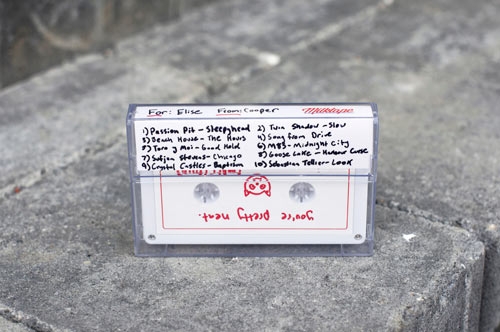 For: Elise From: Cooper Milktape
1) Passion Pit - Sleepyhead 2) Twin Shadow - Slow
3) Beach House - The Hours 4) Song from Drive
5) Toro y Moi - Good Hold 6) M83 - Midnight City
7) Sufjan Stevens - Chicago 8) Goose Lake - Harbour Curse
9) Crystal Castles - Baptism 10) Sebastien Tellier - Look
you're pretty neat.